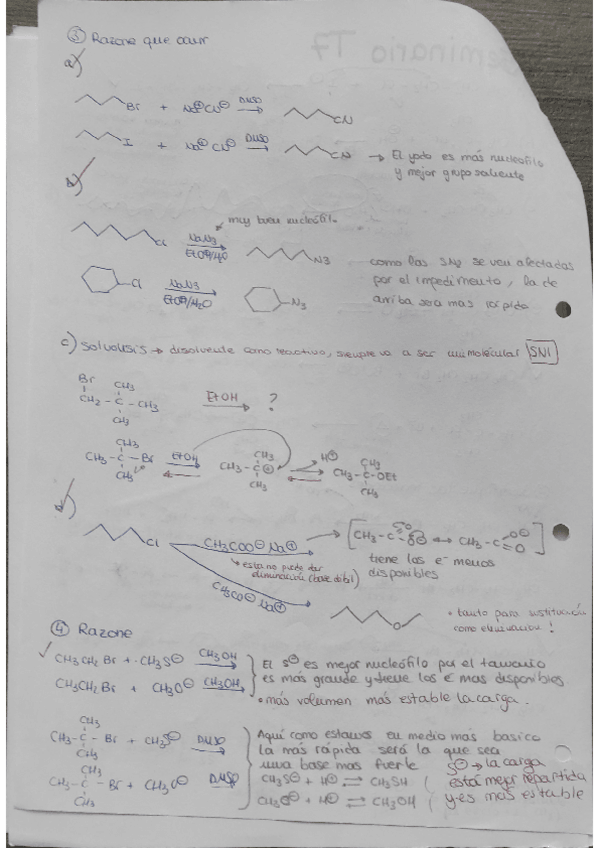 ③ Razone que ocurr
Seminario T7
a)
Br + Na⊕CN⊖ DMSO CN
I + Na⊕ CN⊖ DMSO CN → El yodo es más nucleófilo
y mejor grupo saliente
b)
muy buen nucleófilo
Cl NaN3 EtOH/H2O N3
como las SN2 se ven afectadas
por el impedimento, la de
arriba sera mas rápida
Cl NaN3 EtOH/H2O N3
c) Solvolisis → disolvente como reactivo, siempre va a ser unimolecular SN1
Br CH3
CH2 - C - CH3 EtOH ?
CH3
CH3 CH3 H⊕ CH3
CH3 - C - Br EtOH CH3 - C⊕ CH3 - C - OEt
CH3 CH3 CH3
d)
Cl CH3COO⊖ Na⊕ → [CH3 - C O O⊖ ↔ CH3 - C O⊖ O]
→ esta no puede dar
eliminación (base débil)
tiene los e- menos
disponibles
Na⊕
O
• tanto para sustitución
como eliminación!
④ Razone
CH3CH2Br + CH3S⊖ CH3OH
CH3CH2Br + CH3O⊖ CH3OH
El S⊖ es mejor nucleófilo por el tamaño
es más grande y tiene los e- mas disponibles
• más volumen más estable la carga.
CH3
CH3 - C - Br + CH3S⊖ DMSO
CH3
CH3
CH3 - C - Br + CH3O⊖ DMSO
CH3
Aquí como estamos en medio más basico
la más rápida será la que sea
una base mas fuerte
S⊖ → la carga
está mejor repartida
y es más estable
CH3S⊖ + H⊕ ⇌ CH3SH
CH3O⊖ + H⊕ ⇌ CH3OH